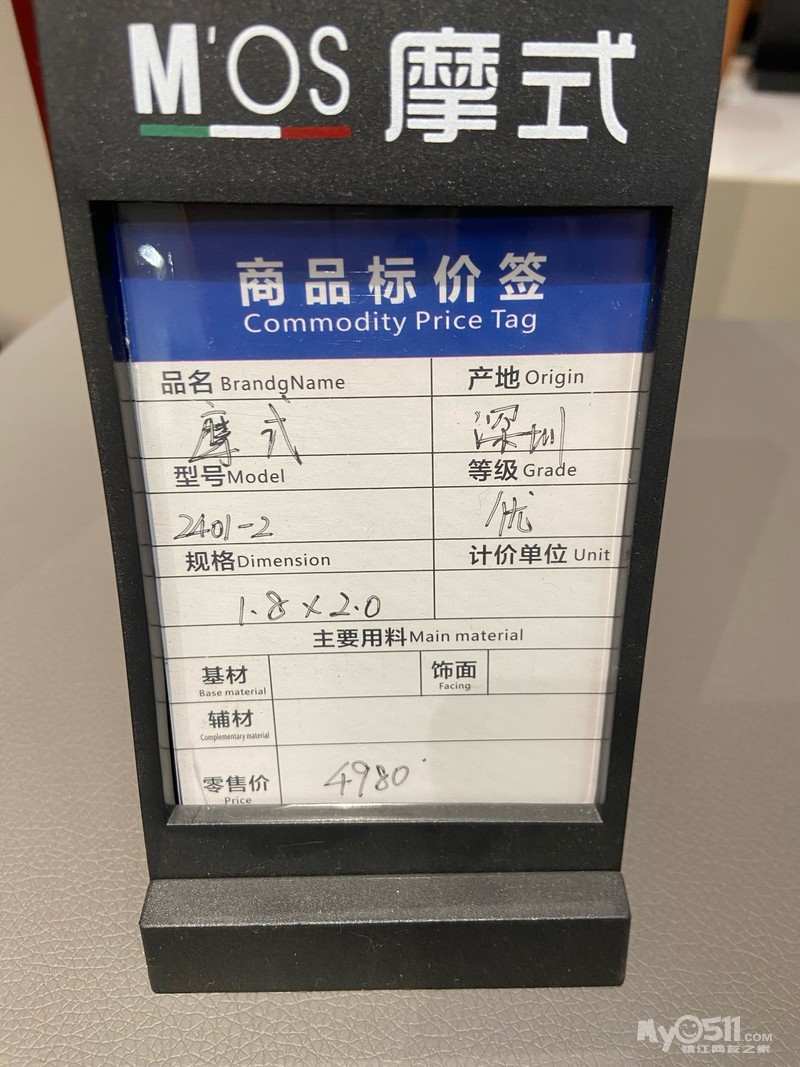 M'OS 摩式
商品标价签
Commodity Price Tag
品名 BrandgName 产地 Origin
摩式 深圳
型号Model 等级 Grade
2401-2 优
规格Dimension 计价单位 Unit
1.8×2.0
主要用料Main material
基材 饰面
Base material Facing
辅材
Complementary material
零售价 4980
Price
My0511.COM
镇江网友之家